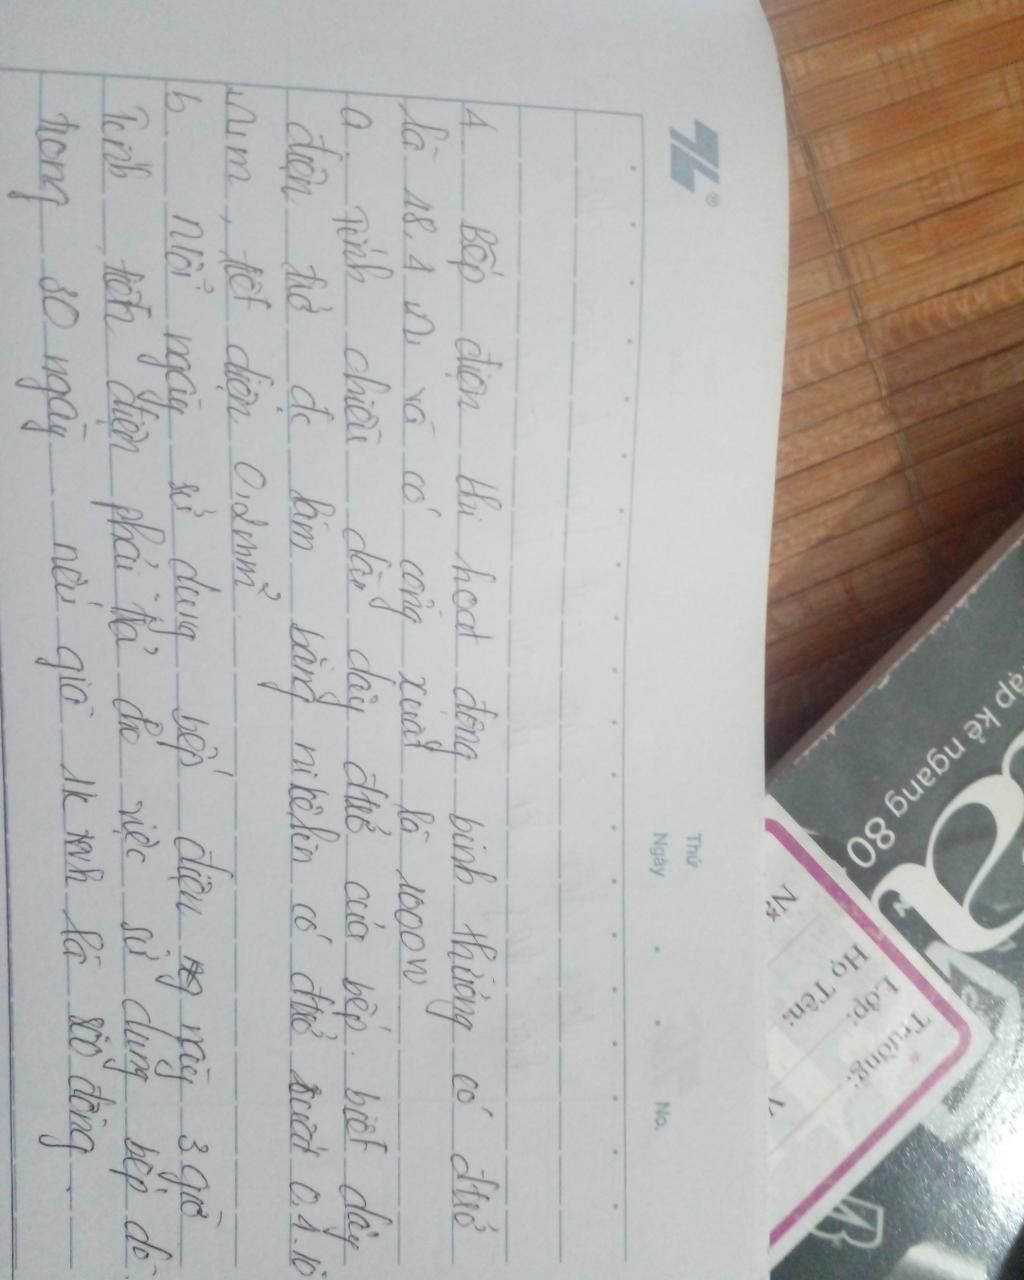 Thứ
Ngày
No.
4 Bếp điện khi hoạt động bình thường có đtrở
là 48.4 Ω và có công xuất là 1000W
a. Tính chiều dài dây đtrở của bếp. biết dây
điện trở đc làm bằng nikêlin có đtrở suất 0.4.10
Ωm, tiết diện 0,2mm²
b Mỗi ngày sử dụng bếp điện này 3 giờ
Tính tiền điện phải trả cho việc sử dụng bếp đó
trong 30 ngày nếu giá 1k wh là đồng.
ập kẻ ngang 80
Trường:
Lớp:
Họ Tên: